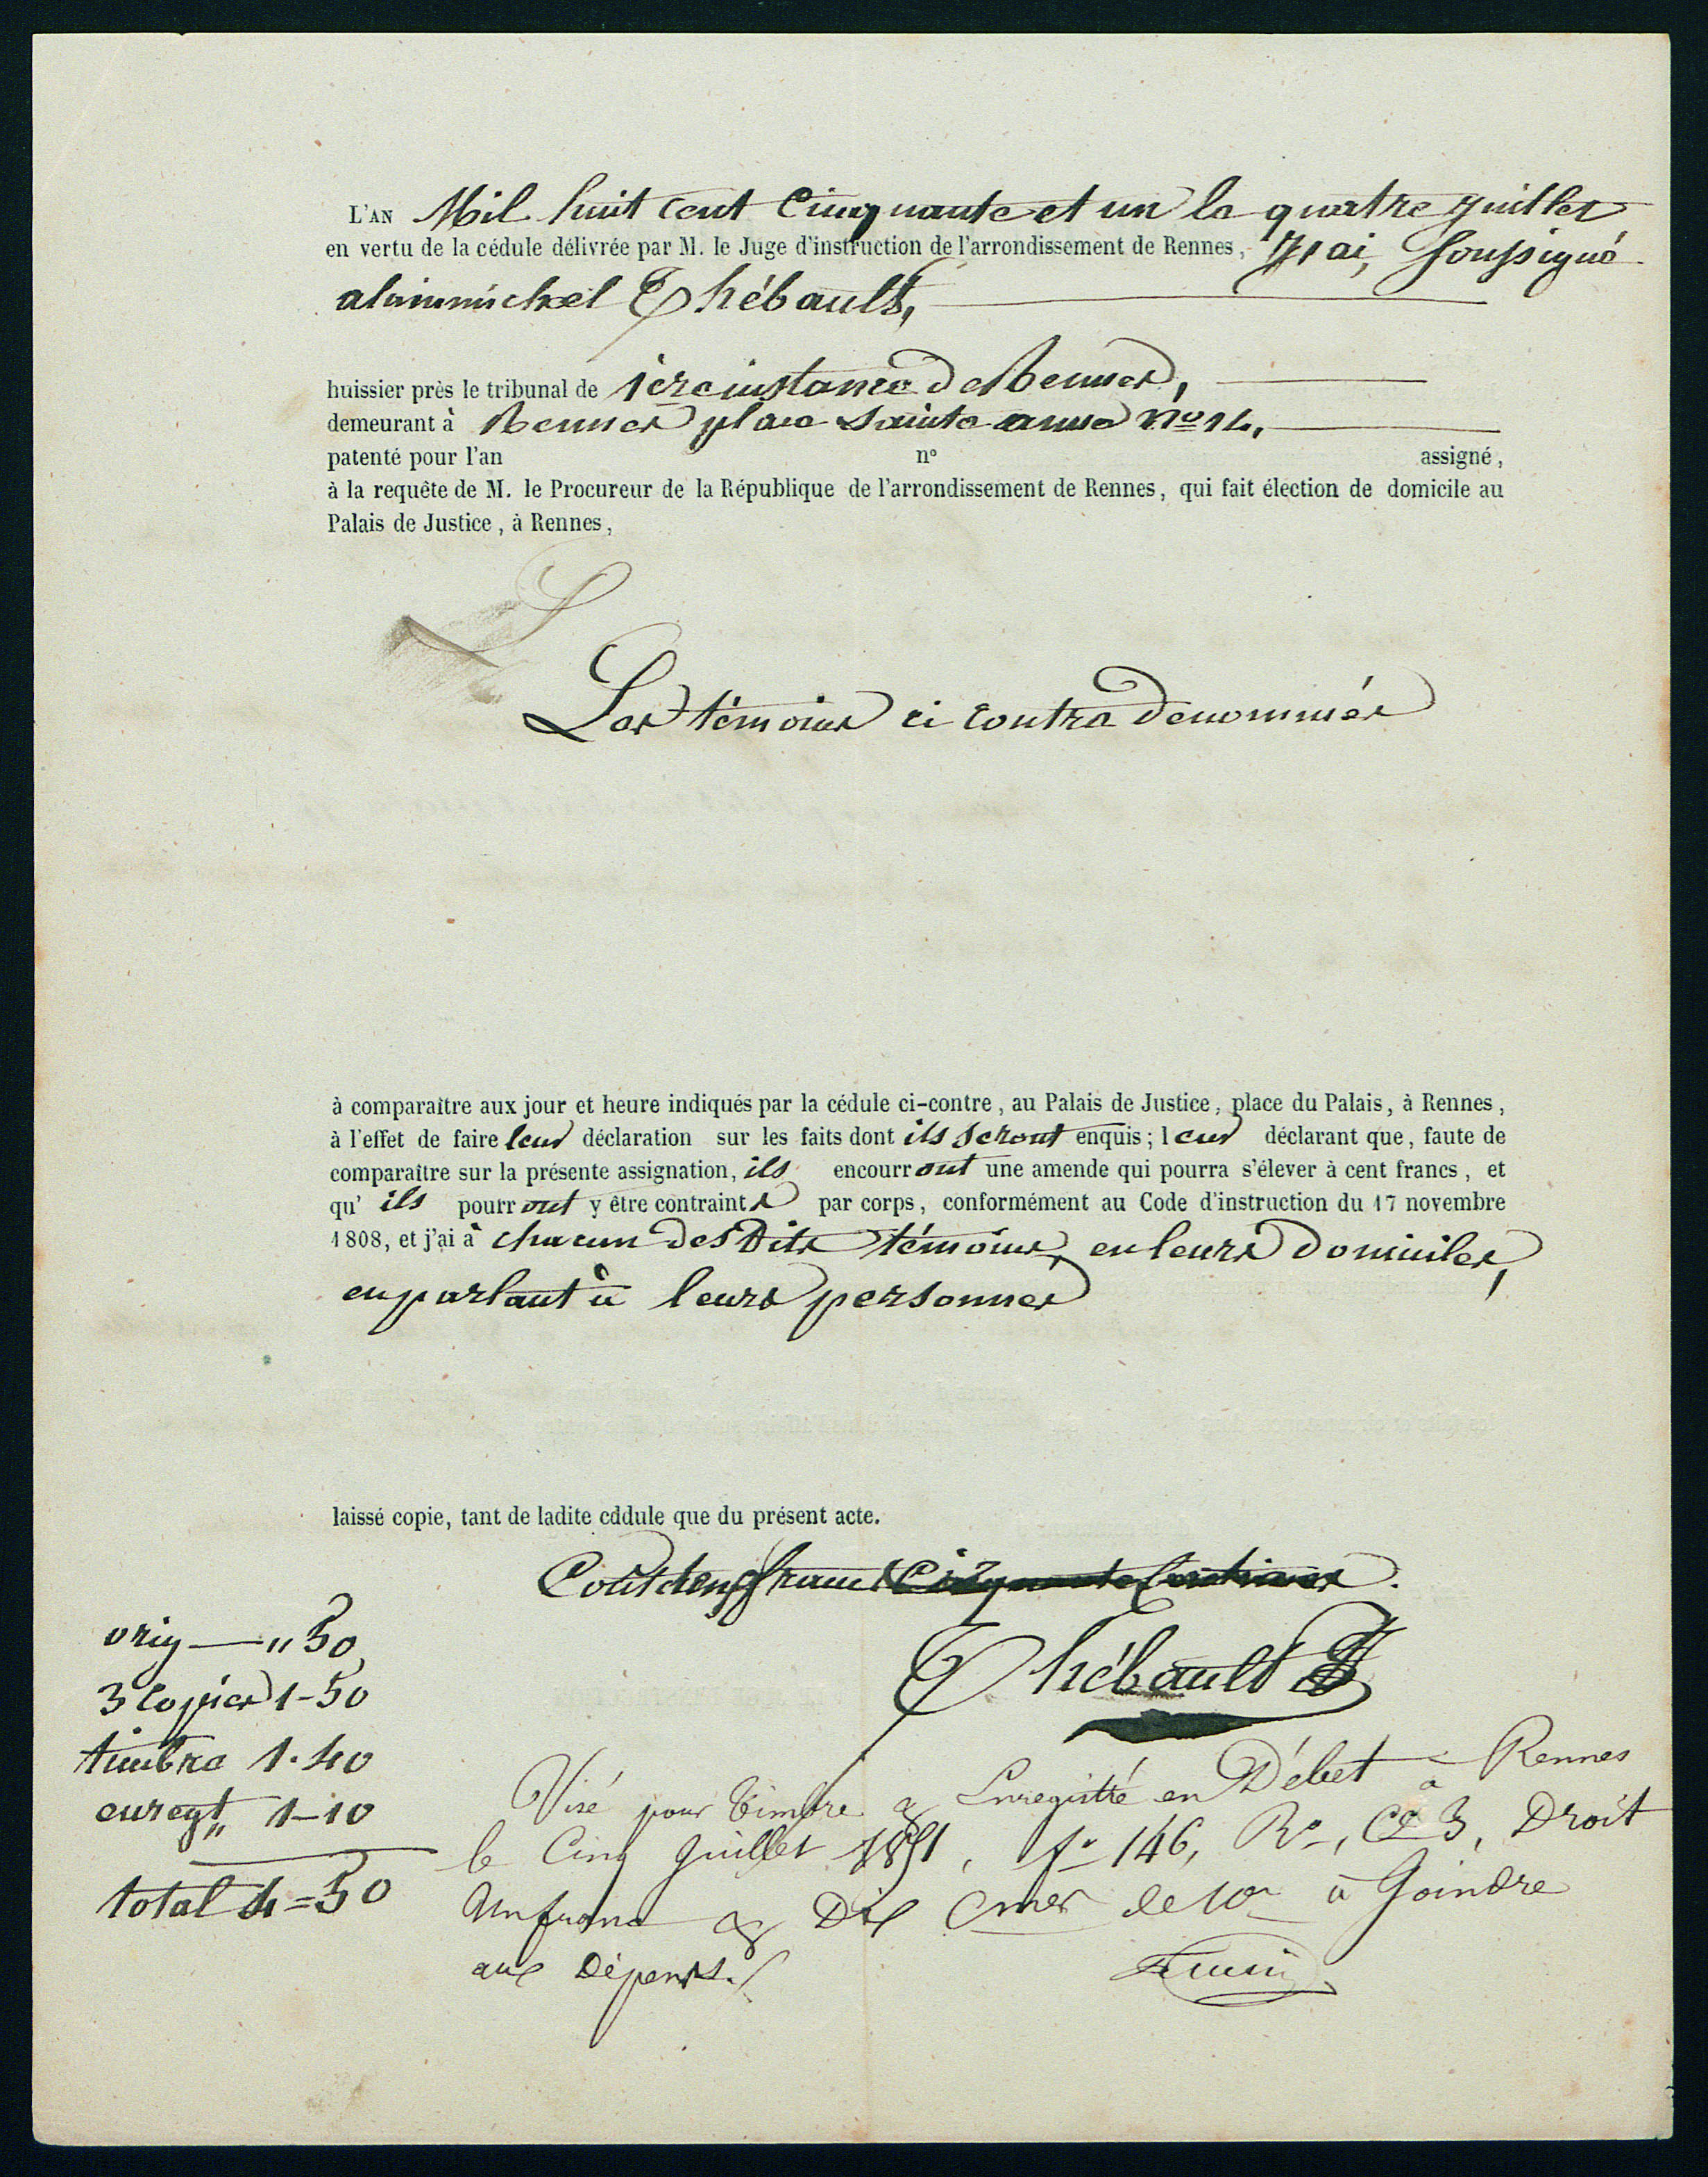 L'AN Mil huit cent Cinquante et un le quatre juillet
en vertu de la cédule délivrée par M. le Juge d'instruction de l'arrondissement de Rennes, J'ai, Soussigné
alain michel Thébault,
huissier près le tribunal de 1ère instance de Rennes,
demeurant à Rennes place Sainte anne No 14,
patenté pour l'an n° assigné,
à la requête de M. le Procureur de la République de l'arrondissement de Rennes, qui fait élection de domicile au
Palais de Justice, à Rennes,
Les témoins ci contre denommés
à comparaître aux jour et heure indiqués par la cédule ci-contre, au Palais de Justice, place du Palais, à Rennes,
à l'effet de faire leur déclaration sur les faits dont ils seront enquis; leur déclarant que, faute de
comparaître sur la présente assignation, ils encourront une amende qui pourra s'élever à cent francs, et
qu' ils pourront y être contraints par corps, conformément au Code d'instruction du 17 novembre
1808, et j'ai à chacun des Dits témoins, en leurs Domiciles,
en parlant à leurs personnes
laissé copie, tant de ladite cddule que du présent acte.
Coût deux francs Cinquante Centimes.
Thébault
orig — " 50
3 Copies 1-50
timbre 1.40
enregt " 1-10
total 4=50
Visé pour timbre & Enregistré en Débet à Rennes
le Cinq Juillet 1851, fo 146, Ro, Ce 3, Droit
Un franc & Dix Cmes de 10e à Joindre
aux Dépens.